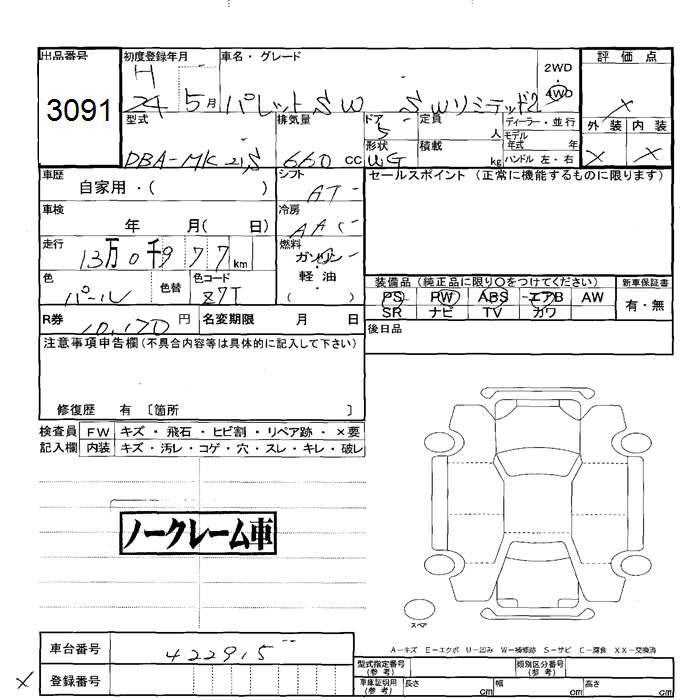 出品番号
3091
初度登録年月
H
24 5月
車名・グレード
パレットSW SWリミテッド2
2WD
4WD
評価点
×
外装 内装
× ×
型式
DBA-MK21S
排気量
660 cc
ドア
5
形状
WG
定員
人
積載
kg
ディーラー・並行
モデル
年式 年
ハンドル 左・右
車歴
自家用・( )
シフト
AT
セールスポイント (正常に機能するものに限ります)
車検
年 月( 日)
冷房
AAC
走行
13万0千977km
燃料
ガソリン
軽・油
( )
色
パール
色替
色コード
Z7T
装備品(純正品に限り○をつけてください)
新車保証書
PS PW ABS エアB AW
SR ナビ TV カワ
有・無
R券
10,170 円
名変期限 月 日
後日品
注意事項申告欄(不具合内容等は具体的に記入して下さい)
修復歴 有 〔箇所 〕
検査員
記入欄
FW キズ・飛石・ヒビ割・リペア跡・×要
内装 キズ・汚レ・コゲ・穴・スレ・キレ・破レ
ノークレーム車
スペア
A-キズ E-エクボ U-凹み W-補修跡 S-サビ C-腐食 XX-交換済
車台番号
422915
× 登録番号
型式指定番号
(参考)
類別区分番号
(参考)
車庫証明用
(参考)
長さ cm 幅 cm 高さ cm